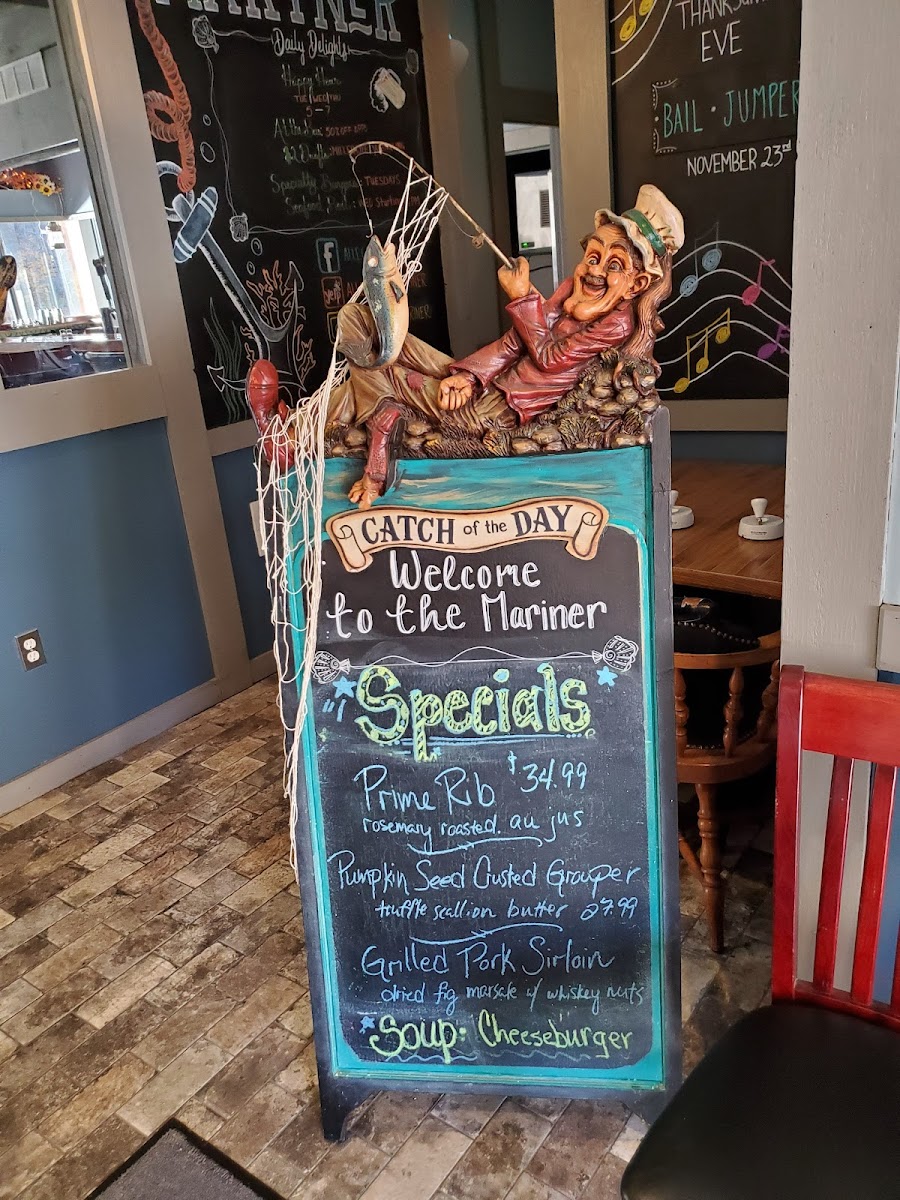 MARINER
Daily Delights
Happy Hour
5-7
Specialty Burgers: TUESDAYS
THANKSGIVING
EVE
BAIL · JUMPER
NOVEMBER 23rd
CATCH of the DAY
Welcome
to the Mariner
Specials
Prime Rib $34.99
rosemary roasted. au jus
Pumpkin Seed Crusted Grouper
truffle scallion butter 27.99
Grilled Pork Sirloin
dried fig marsale w/ whiskey nuts
Soup: Cheeseburger